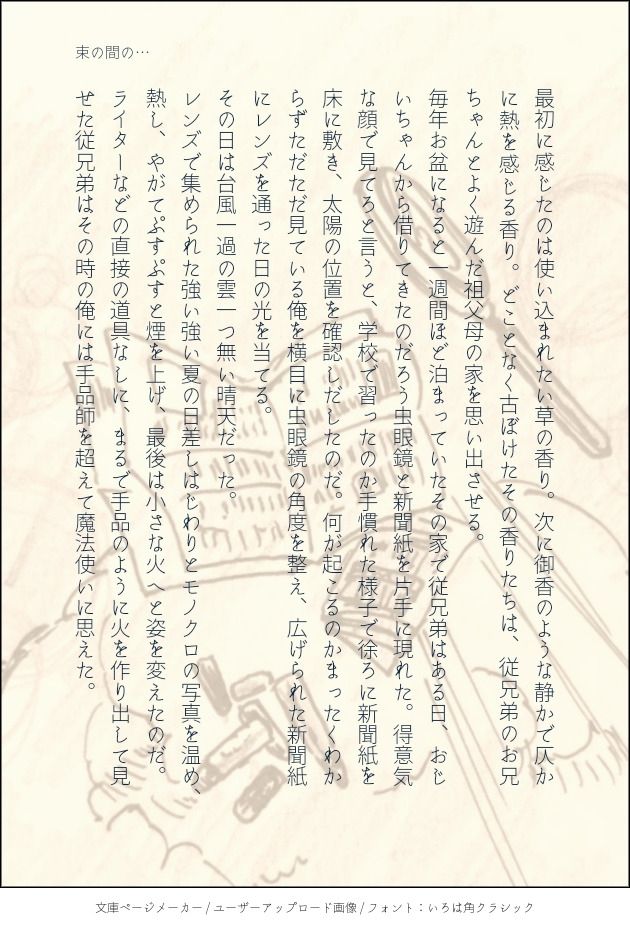 束の間の…
最初に感じたのは使い込まれたい草の香り。次に御香のような静かで仄か
に熱を感じる香り。どことなく古ぼけたその香りたちは、従兄弟のお兄
ちゃんとよく遊んだ祖父母の家を思い出させる。
毎年お盆になると一週間ほど泊まっていたその家で従兄弟はある日、おじ
いちゃんから借りてきたのだろう虫眼鏡と新聞紙を片手に現れた。得意気
な顔で見てろと言うと、学校で習ったのか手慣れた様子で徐ろに新聞紙を
床に敷き、太陽の位置を確認しだしたのだ。何が起こるのかまったくわか
らずただただ見ている俺を横目に虫眼鏡の角度を整え、広げられた新聞紙
にレンズを通った日の光を当てる。
その日は台風一過の雲一つ無い晴天だった。
レンズで集められた強い強い夏の日差しはじわりとモノクロの写真を温め、
熱し、やがてぷすぷすと煙を上げ、最後は小さな火へと姿を変えたのだ。
ライターなどの直接の道具なしに、まるで手品のように火を作り出して見
せた従兄弟はその時の俺には手品師を超えて魔法使いに思えた。
文庫ページメーカー / ユーザーアップロード画像 / フォント：いろは角クラシック